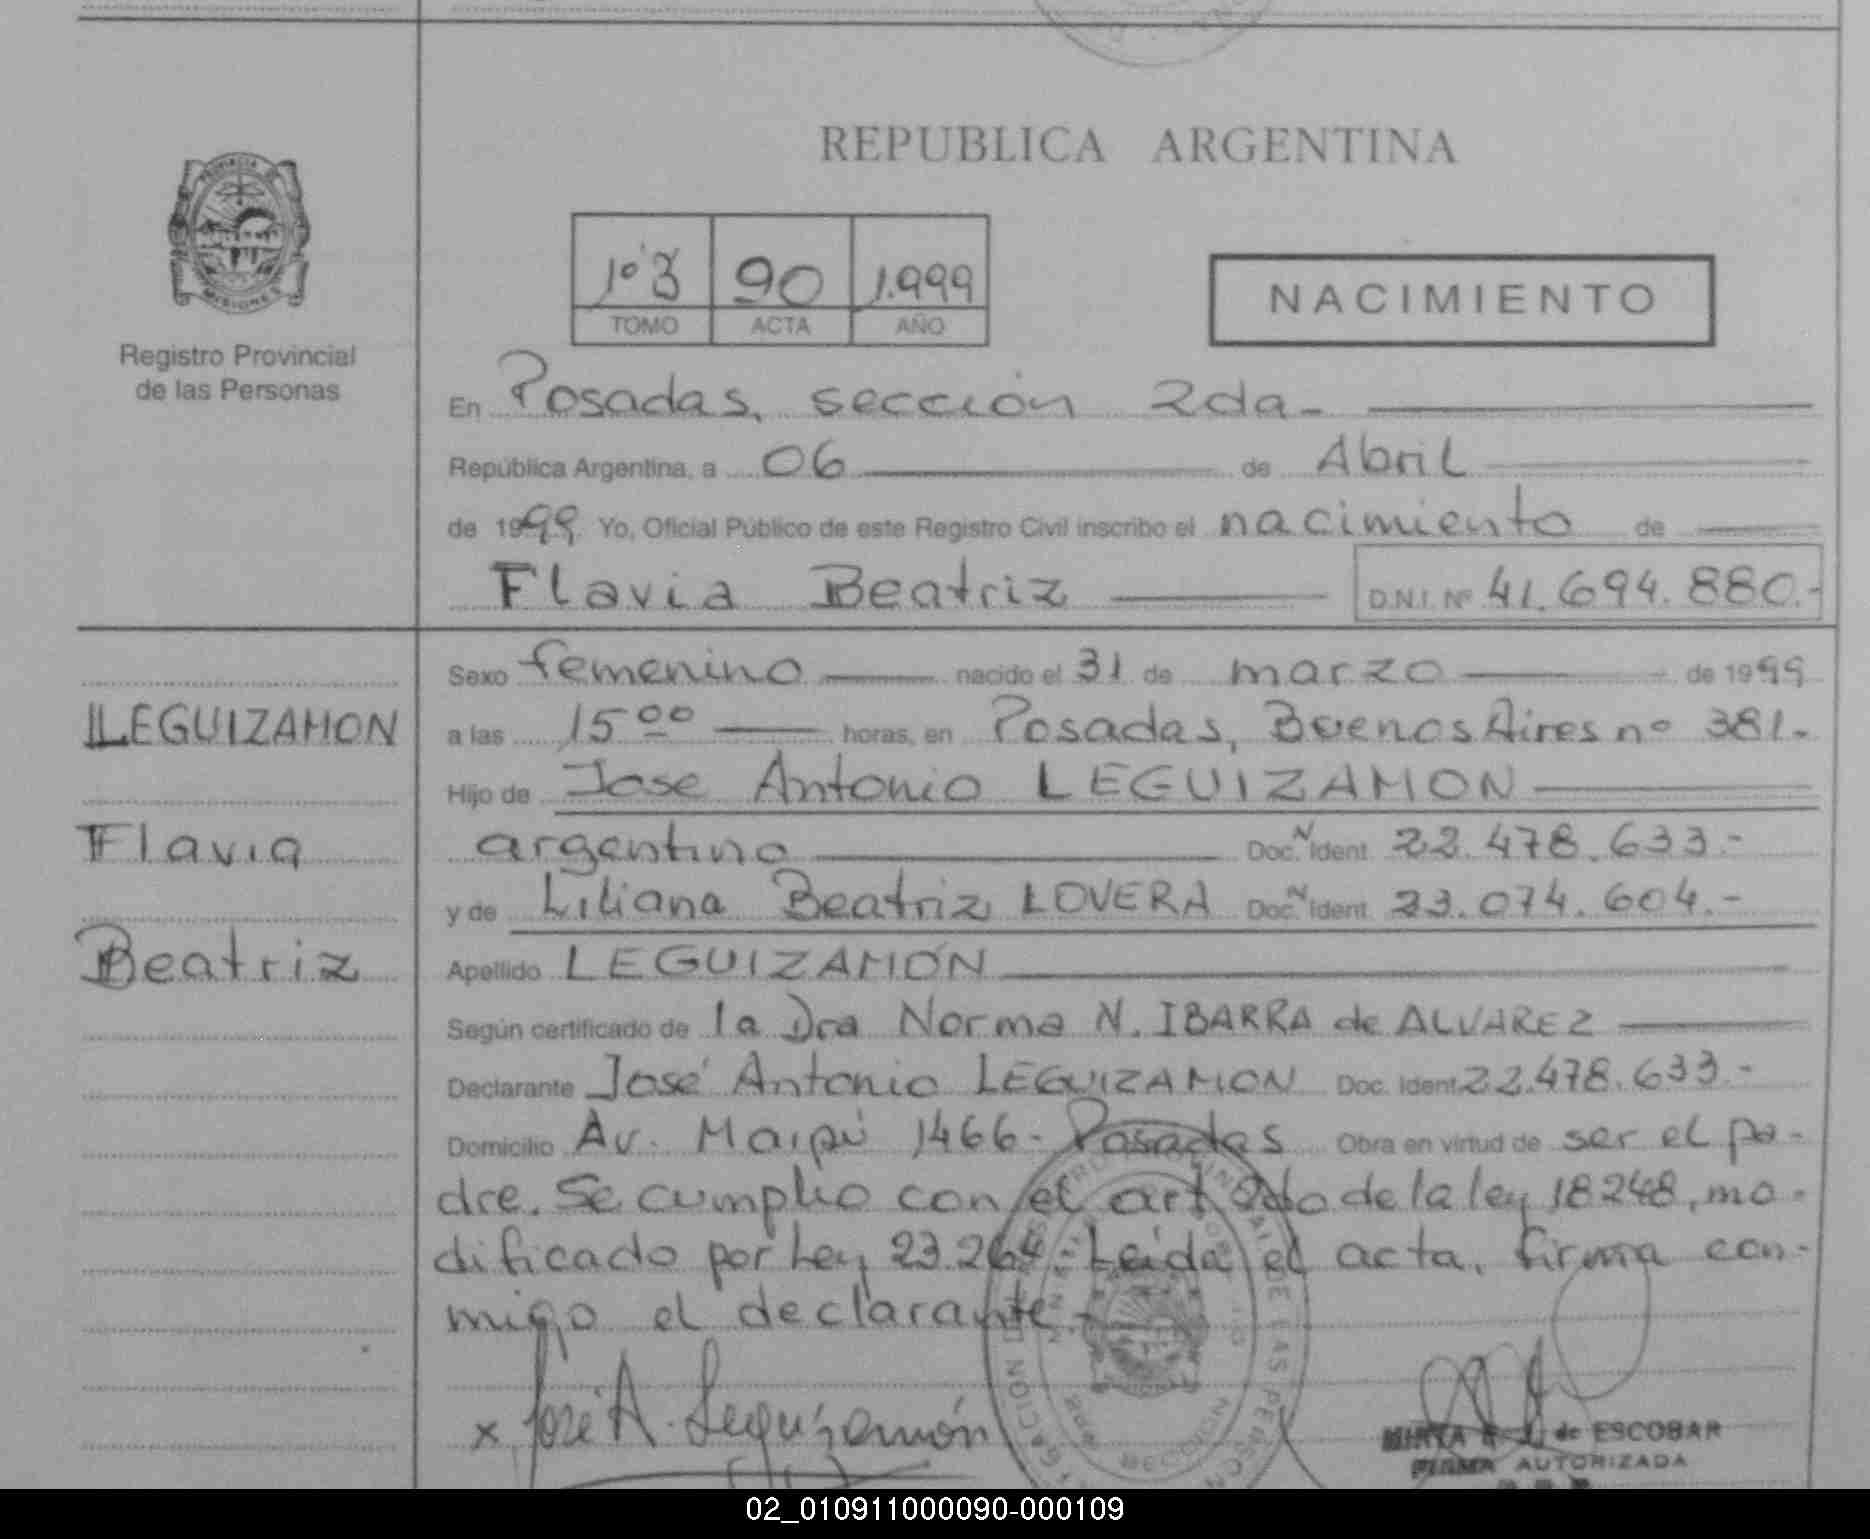 REPUBLICA ARGENTINA
PROVINCIA DE
MISIONES
Registro Provincial
de las Personas
1º 3 90 1.999
TOMO ACTA AÑO
NACIMIENTO
En Posadas, sección 2da.-
República Argentina, a 06 de Abril
de 1999 Yo, Oficial Público de este Registro Civil inscribo el nacimiento de
Flavia Beatriz D.N.I. Nº 41.694.880.-
LEGUIZAMON
Flavia
Beatriz
Sexo femenino nacido el 31 de marzo de 1999
a las 15ºº horas, en Posadas, Buenos Aires nº 381.
Hijo de Jose Antonio LEGUIZAMON
argentino Doc. N Ident 22.478.633.-
y de Liliana Beatriz LOVERA Doc. N Ident 23.074.604.-
Apellido LEGUIZAMÓN
Según certificado de la Dra Norma N. IBARRA de ALVAREZ
Declarante José Antonio LEGUIZAMON Doc. Ident. 22.478.633.-
Domicilio Av. Maipú 1466- Posadas Obra en virtud de ser el pa-
dre. Se cumplio con el art 2do de la ley 18248, mo-
dificado por Ley 23.264. Leida el acta, firma con-
migo el declarante.-
x José A. Leguizamón
de ESCOBAR
FIRMA AUTORIZADA
02_010911000090-000109